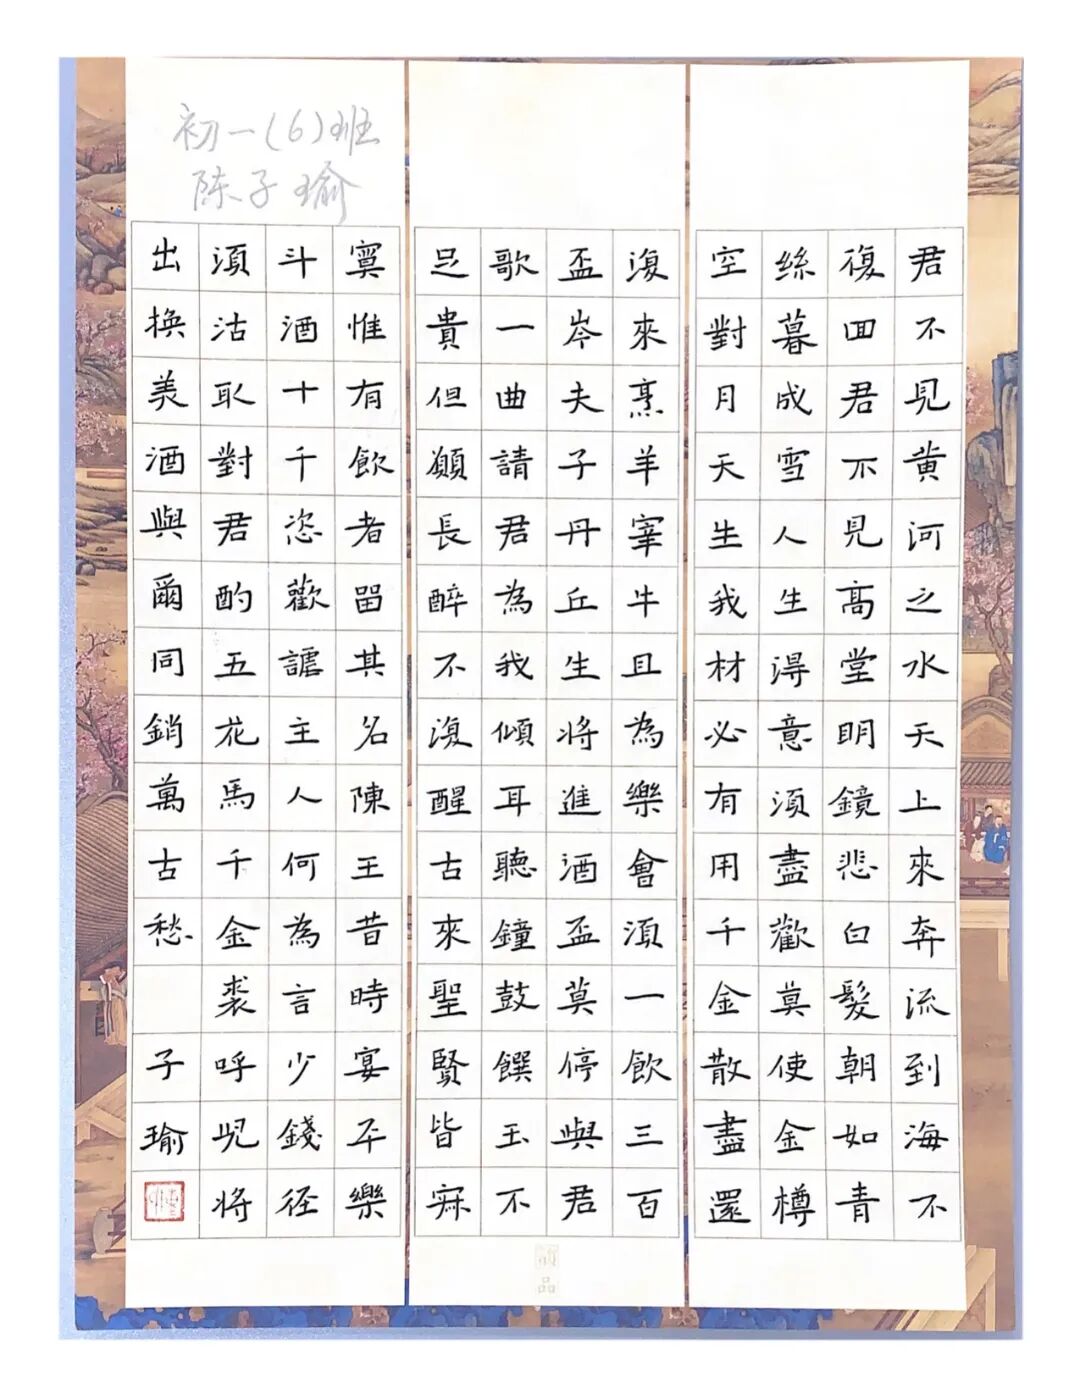 初一(6)班
陈子瑜
君不見黄河之水天上來奔流到海不
復回君不見高堂明鏡悲白髮朝如青
絲暮成雪人生得意須盡歡莫使金樽
空對月天生我材必有用千金散盡還
復來烹羊宰牛且為樂會須一飲三百
盃岑夫子丹丘生将進酒盃莫停與君
歌一曲請君為我傾耳聽鐘鼓饌玉不
足貴但願長醉不復醒古來聖賢皆寂
寞惟有飲者留其名陳王昔時宴平樂
斗酒十千恣歡謔主人何為言少錢径
須沽取對君酌五花馬千金裘呼児将
出換美酒與爾同銷萬古愁 子瑜